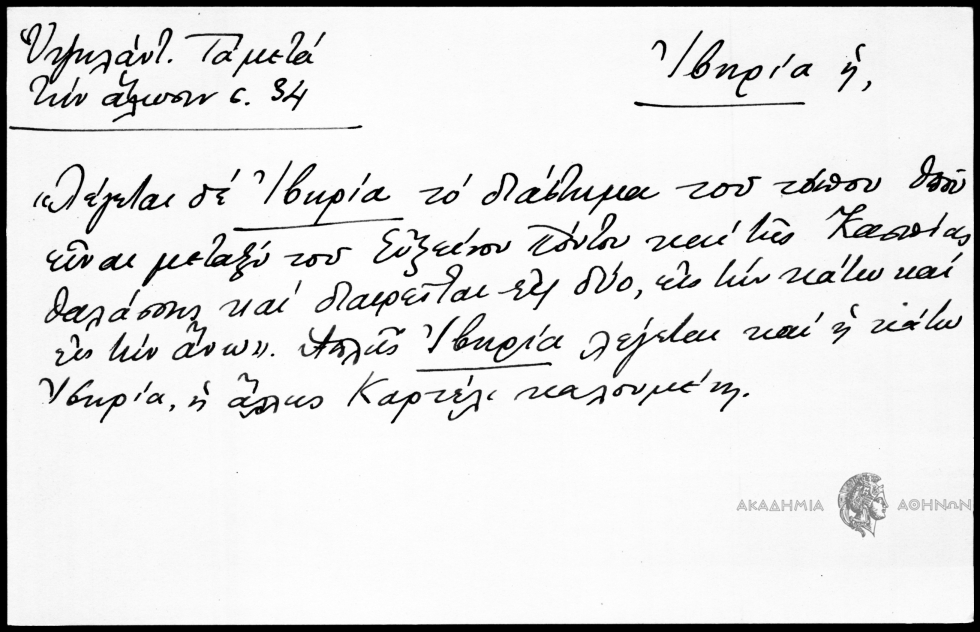 Ὑψηλάντ. Τά μετά
τήν ἅλωσιν σ. 34
Ἰβηρία ἡ,
«Λέγεται δέ Ἰβηρία τό διάστημα τοῦ τόπου ὁποῦ
εἶναι μεταξύ τοῦ Εὐξείνου Πόντου καί τῆς Κασπίας
θαλάσσης καί διαιρεῖται εἰς δύο, εἰς τήν κάτω καί
εἰς τήν ἄνω». Ἁπλῶς Ἰβηρία λέγεται καί ἡ κάτω
Ἰβηρία, ἡ ἄλλως Καρτέλι καλουμένη.
ΑΚΑΔΗΜΙΑ ΑΘΗΝΩΝ